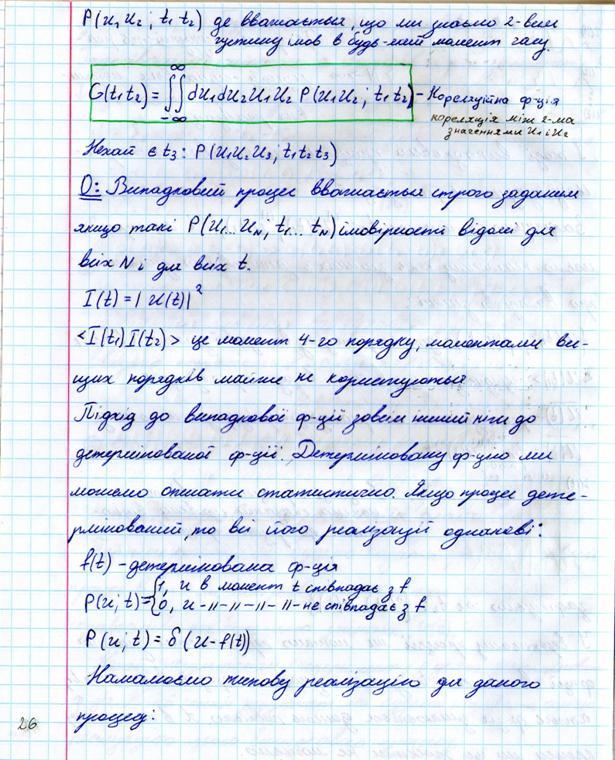 P(u₁u₂; t₁t₂) де вважається, що ми знаємо 2-вим
густину імов в будь-який момент часу.
G(t₁t₂) = ∬ du₁du₂u₁u₂ P(u₁u₂; t₁t₂) - Кореляційна ф-ція
∞
-∞
кореляція між 2-ма
значеннями u₁ і u₂
Нехай є t₃: P(u₁u₂u₃; t₁t₂t₃)
О: Випадковий процес вважається строго заданим
якщо такі P(u₁...uN; t₁...tN) імовірності відомі для
всіх N і для всіх t.
I(t) = |u(t)|²
<I(t₁)I(t₂)> це момент 4-го порядку, моментами ви-
щих порядків майже не користуються
Підхід до випадкової ф-ції зовсім інший ніж до
детермінованої ф-ції. Детерміновану ф-цію ми
можемо описати статистично. Якщо процес дете-
рмінований, то всі його реалізації однакові:
f(t) - детермінована ф-ція
P(u; t) = {1, u в момент t співпадає з f
0, u -11-11-11-11- не співпадає з f
P(u; t) = δ(u-f(t))
Намалюємо типову реалізацію для даного
процесу:
26